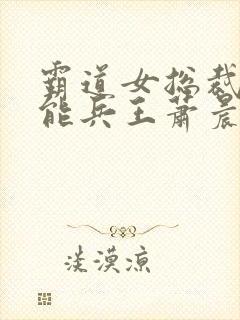 霸道女总裁
能兵王萧晨
淡漠凉